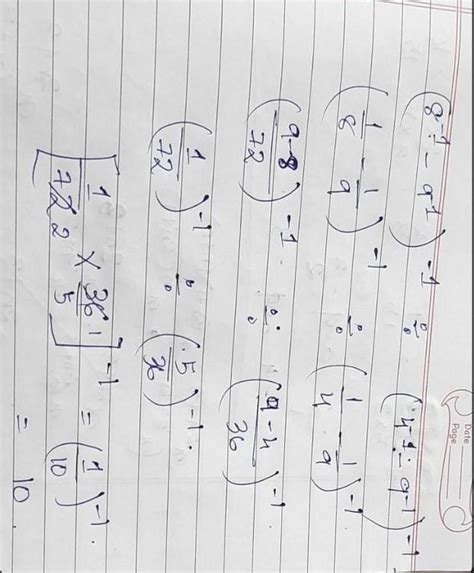 Date
Page
(8⁻¹ - 9⁻¹)⁻¹ ÷ (4⁻¹ - 9⁻¹)⁻¹
(1/8 - 1/9)⁻¹ ÷ (1/4 - 1/9)⁻¹
(9-8/72)⁻¹ ÷ (9-4/36)⁻¹
(1/72)⁻¹ ÷ (5/36)⁻¹.
[1/72 2 × 36 1/5]⁻¹ = (1/10)⁻¹.
= 10.